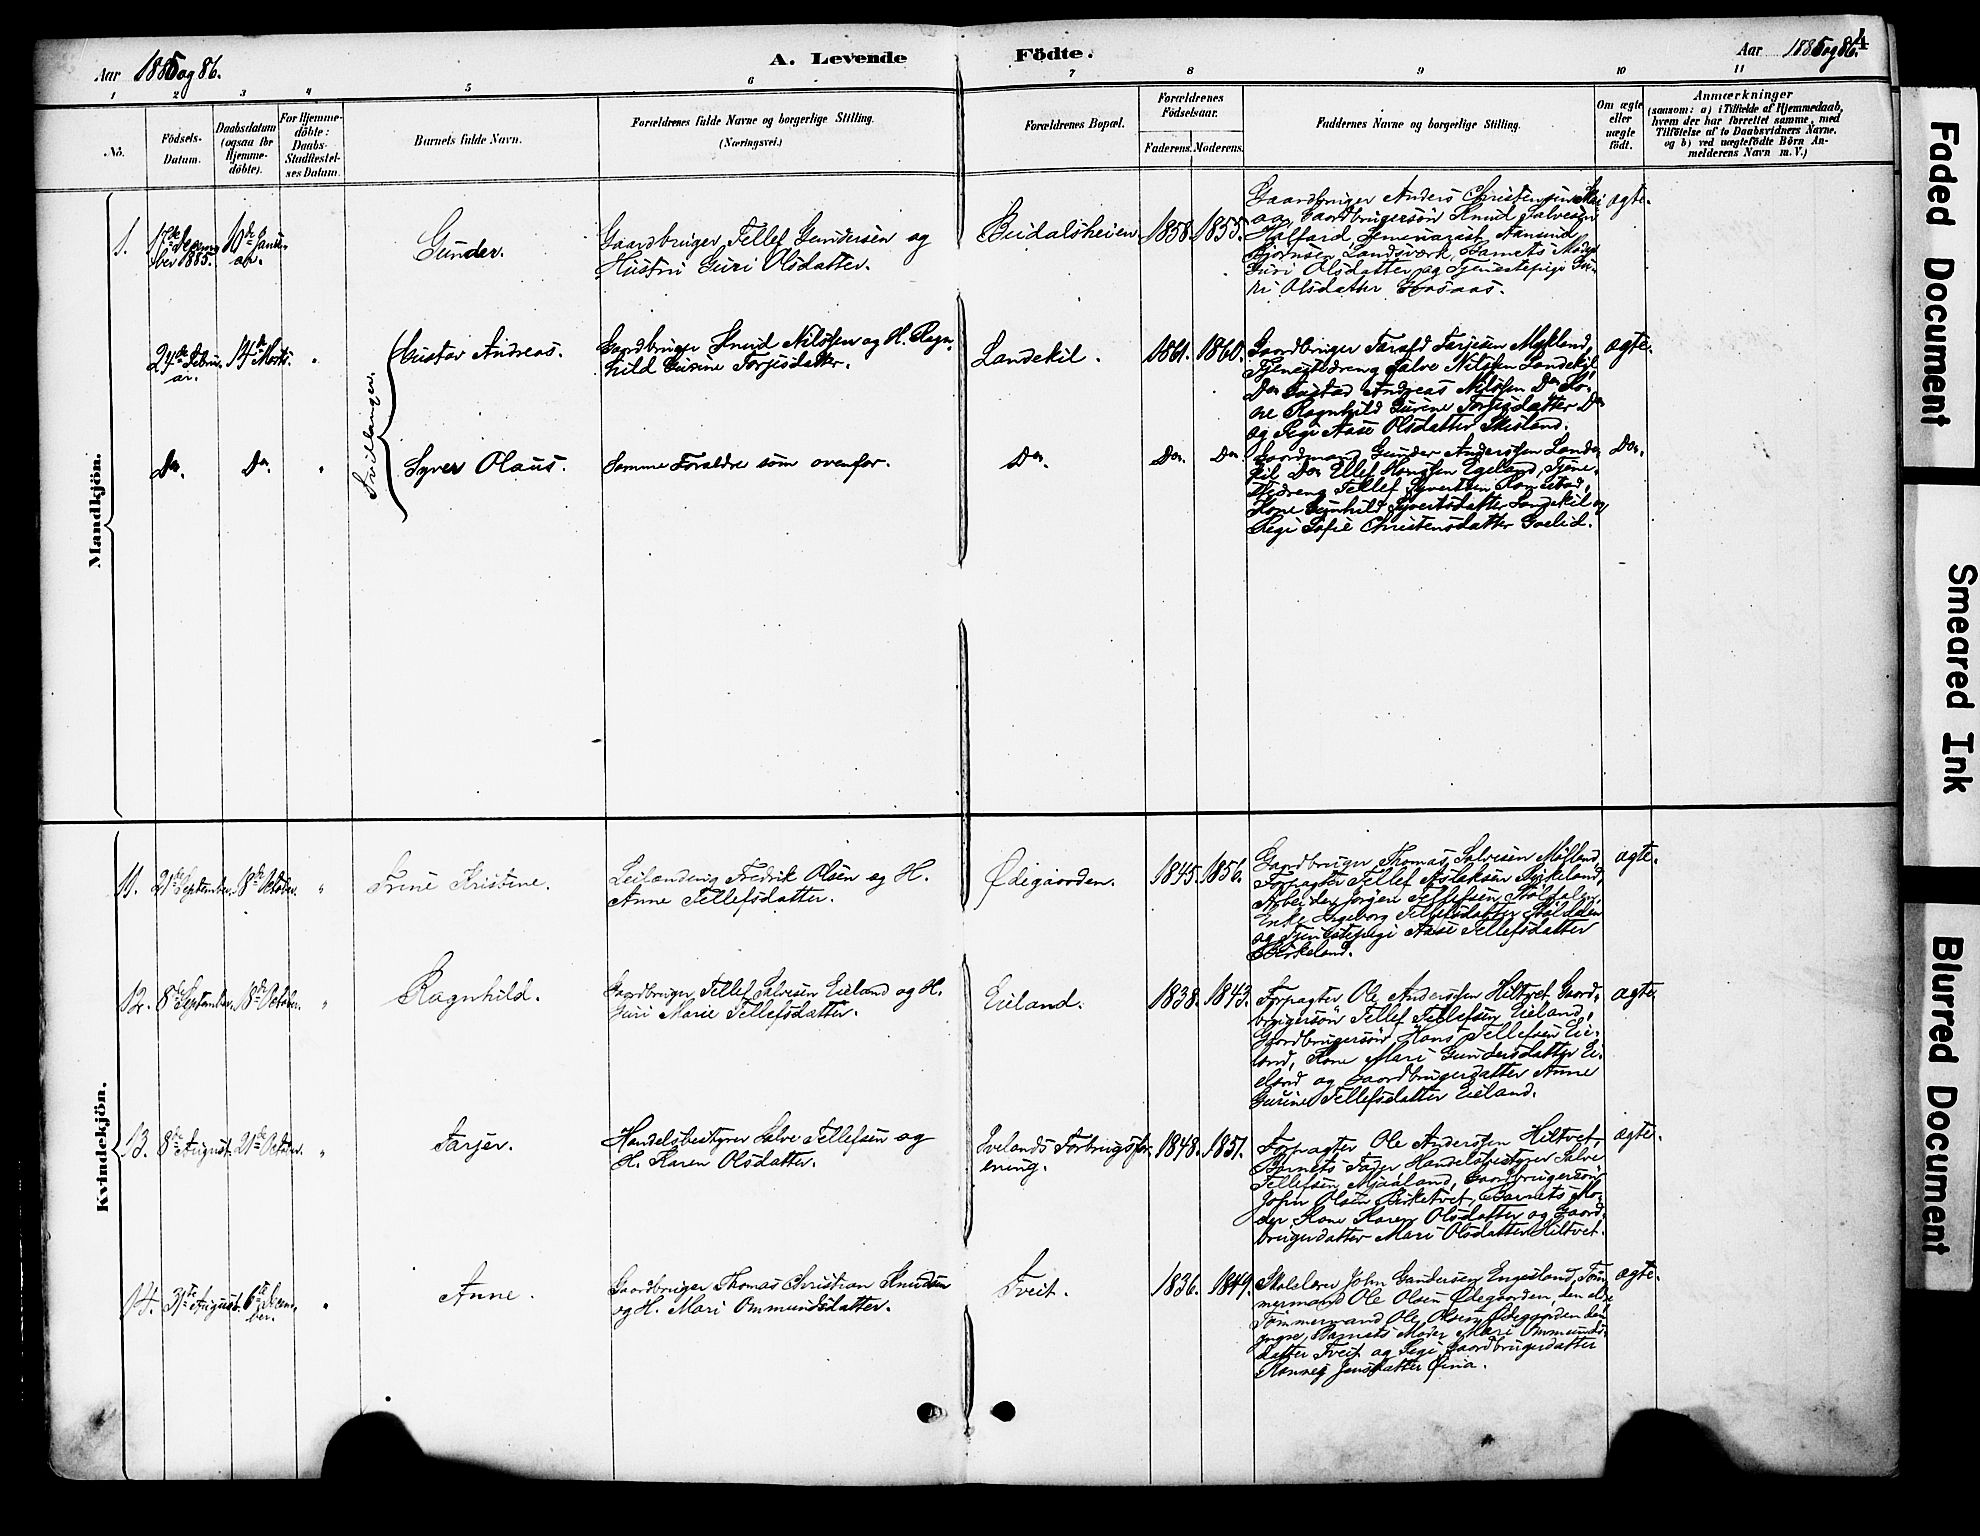 Aar 1885 og 86.
A. Levende Födte.
Aar 1885 og 86. 4
1 2 3 4 5 6 7 8 9 10 11
Nö.
Födsels-
Datum.
Daabsdatum
(ogsaa for
Hjemme-
döbte).
For Hjemme-
döbte:
Daabs-
Stadfæstel-
ses Datum.
Barnets fulde Navn.
Forældrenes fulde Navne og borgerlige Stilling.
(Næringsvei.)
Forældrenes Bopæl.
Forældrenes
Födselsaar.
Faderens. Moderens.
Faddernes Navne og borgerlige Stilling.
Om ægte
eller
uægte
födt.
Anmærkninger
(saasom: a) i Tilfælde af Hjemmedaab,
hvem der har forrettet samme, med
Tilföielse af to Daabsvidners Navne.
og b) ved uægtefödte Börn An-
melderens Navn m. V.)
Mandkjön.
1.
17de Decem-
ber 1885.
10de Janu-
ar.
Gunder.
Gaardbruger Tellef Gundersen og
Hustru Guri Olsdatter.
Beidalsheien
1858. 1855.
Gaardbruger Anders Christensen
og Gaardbrugersön Knud Salvesen
Aamund
Bjørnsen Landsværk, Barnets Moder
Guri Olsdatter og Tjenestepige Gu-
ri Olsdatter
ægte.
Tvillinger.
24de Febru-
ar.
14de Marts.
"
Gustav Andreas.
Gaardbruger Knud Nilssen og H. Ragn-
hild Gurine Torjesdatter.
Landekil.
1861. 1860.
Gaardbruger Tarald Tarjesen Mykland,
Tjenestedreng Salve Nilssen Landekil,
Do Gustad Andreas Nilssen Do Ko-
ne Ragnhild Gurine Torjesdatter Do
og Pige Aase Olsdatter Skisland.
ægte.
Do. Do. "
Syver Olaus.
Samme Forældre som ovenfor.
Do.
Do. Do.
Gaardmand Gunder Anderssen Lande-
kil Do Ellef Hanssen Egeland, Tjene-
stedreng Tellef Syvertsen
Kone Gunhild Syvertsdatter Landekil og
Pige Sofie Christensdatter
Do.
Kvindekjön.
11.
21de September.
18de October.
"
Trine Kristine.
Leilænding Fredrik Olsen og H.
Anne Tellefsdatter.
Ødegaarden.
1845. 1856.
Gaardbruger Thomas Salvesen Mølland,
Forpagter Tellef Aslaksen Birkeland,
Arbeider Jörgen Tellefsen
Enke Ingeborg Tellefsdatter
og Tjenestepige Aase Tellefsdatter
Birkeland.
ægte.
12.
8de September.
18de October.
"
Ragnhild.
Gaardbruger Tellef Salvesen Eieland og H.
Guri Marie Tellefsdatter.
Eieland.
1838. 1843.
Forpagter Ole Anderssen Hiltvet, Gaard-
brugersön Tellef Tellefsen Eieland,
Gaardbrugersön Hans Tellefsen Eie-
land, Kone Mari Gundersdatter Ei-
eland og Gaardbrugerdatter Anne
Gurine Tellefsdatter Eieland.
ægte
13.
8de August.
21de October.
"
Tarjer.
Handelsbestyrer Salve Tellefsen og
H. Karen Olsdatter.
Ivelands Forbrugsfor-
ening.
1848. 1851.
Forpagter Ole Anderssen Hiltvet,
Barnets Fader Handelsbestyrer Salve
Tellefsen Mjaaland, Gaardbrugersön
John Olsen Birketvet, Barnets Mo-
der, Kone Karen Olsdatter og Gaard-
brugerdatter Mari Olsdatter Hiltvet.
ægte.
14.
31te August.
6te Decem-
ber.
"
Anne.
Gaardbruger Thomas Christian Knudsen
og H. Mari Ommundsdatter.
Tveit.
1836. 1849.
Skolelærer John Gundersen Engesland, Töm-
mermand Ole Olsen Ødegaarden, den eldre
Tömmermand Ole Olsen Ødegaarden den
yngre, Barnets Moder Mari Ommunds-
datter Tveit og Pige, Gaardbrugerdatter
Jensdatter
ægte.
Faded Document
Smeared Ink
Blurred Document